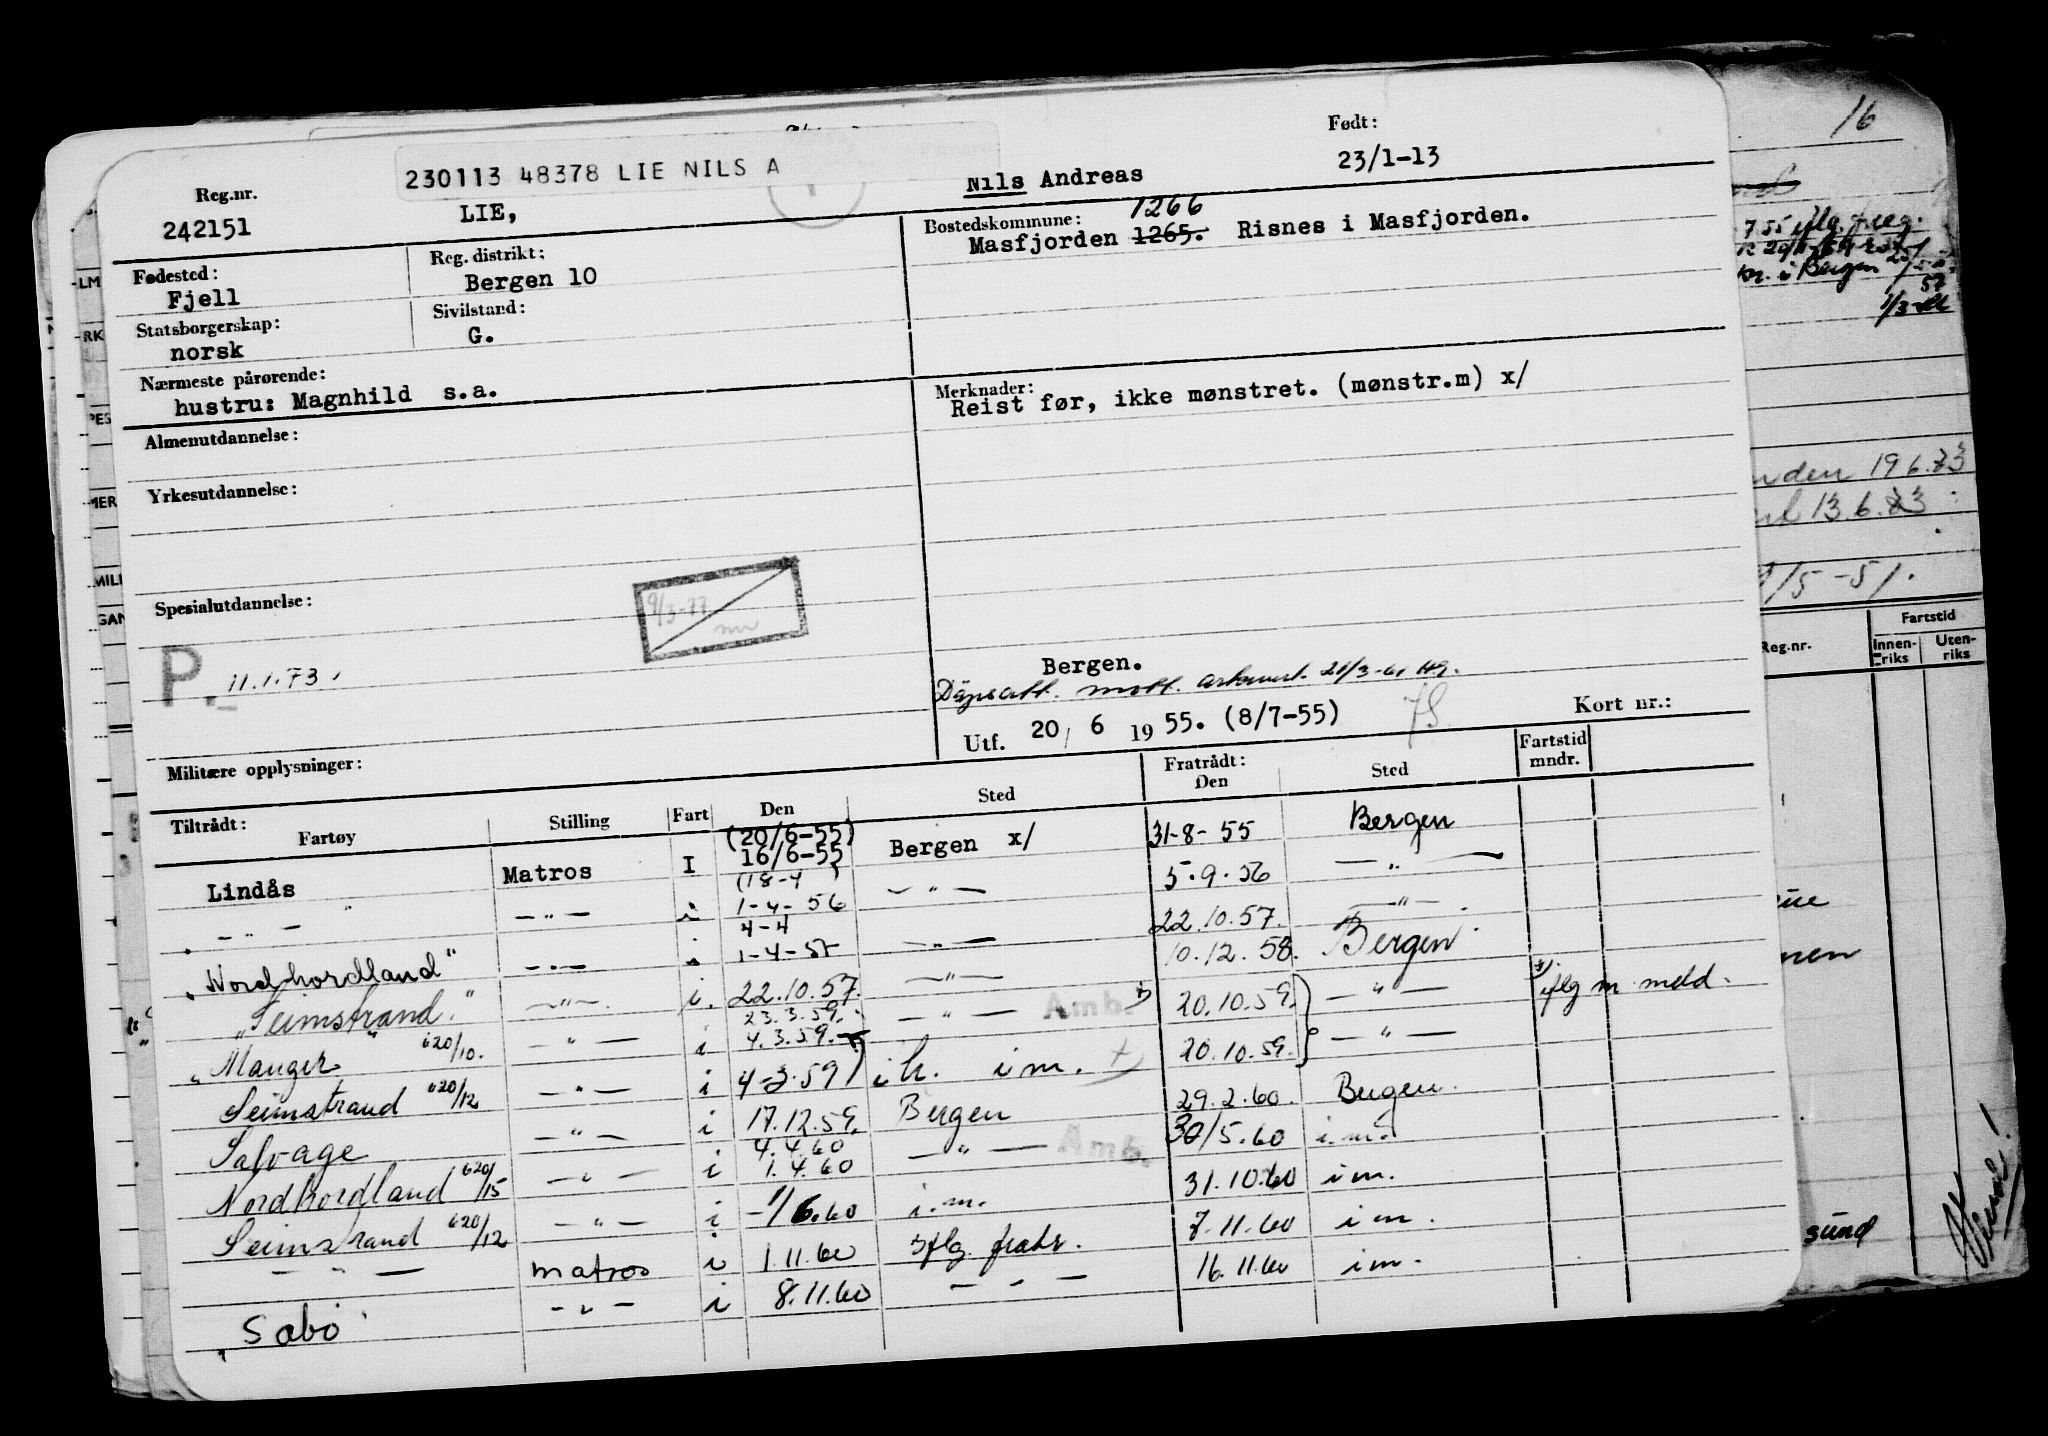 230113 48378 LIE NILS A
Født:
Reg.nr.
242151
LIE,
Nils Andreas
23/1-13
Fødested:
Fjell
Reg. distrikt:
Bergen 10
Bostedskommune:
1266
Masfjorden 1265. Risnes i Masfjorden.
Statsborgerskap:
norsk
Sivilstand:
G.
Nærmeste pårørende:
hustru: Magnhild s.a.
Merknader:
Reist før, ikke mønstret. (mønstr.m) x/
Almenutdannelse:
Yrkesutdannelse:
Spesialutdannelse:
9/3-77
P. 11.1.73.
Bergen.
mott. 21/3-61
Utf. 20/ 6 1955. (8/7-55)
Kort nr.:
Militære opplysninger:
Tiltrådt:
Fartøy Stilling Fart Den Sted Fratrådt: Den Sted Fartstid mndr.
(20/6-55)
Lindås Matros I 16/6-55 Bergen x/ 31-8-55 Bergen
(18-4 )
— " — — " — i 1-4-56 — " — 5.9.56 — " —
4-4
"Nordhordland" — " — i 1-4-57 — " — 22.10.57. — " —
"Seimstrand." — " — i. 22.10.57. — " — 10.12.58. Bergen
23.3.59.
"Manger" 620/10. — " — i 4.3.59. — " — Amb. 20.10.59. — " — iflg m meld.
Seimstrand 620/12 — " — i 4-3-59 i h. i m. 20.10.59. — " —
Salvage — " — i 17.12.59. Bergen 29.2.60. Bergen.
4.4.60
Nordhordland 620/15 — " — i 1.4.60 — " — Amb. 30/5.60 i.m.
Seimstrand 620/12 — " — i 1/6.60 i.m. 31.10.60 i m.
— " — matros i 1.11.60 iflg. fratr. 7.11.60 i m.
"Sabo" — " — i 8.11.60 — " — 16.11.60 i m.
16
i Bergen
19.6.73
13.6.73
/5-51.
Reg.nr.
Fartstid
Innen-riks
Uten-riks
sund